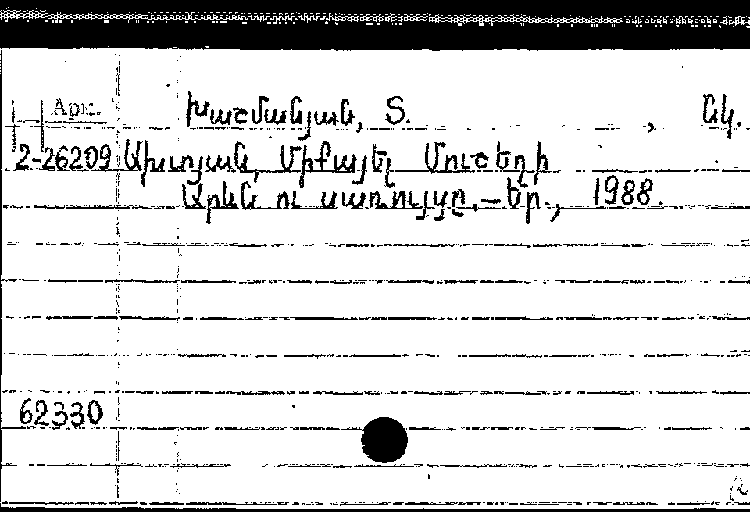 Арм. Խաչմանյան, Տ. , նկ.
2-26209 Ախոյան, Միքայել Մուշեղի
Արևն ու սառույցը.–Եր., 1988.
62330